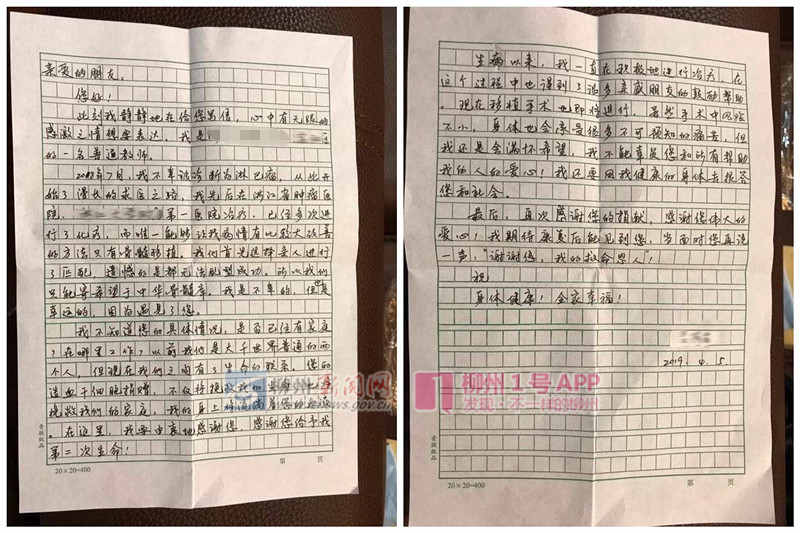 亲爱的朋友,
您好!
此刻我静静地在给您写信,心中有无限的
感激之情想要表达,我是
的一名普通教师。
年7月,我不幸被诊断为淋巴瘤,从此开
始了漫长的求医之路,我先后在浙江省肿瘤医
院,第一医院治疗,已经多次进
行了化疗,而唯一能够让我病情有比较大改善
的方法只有骨髓移植,我们首先选择亲人进行
了匹配,遗憾的是都无法配型成功,所以我们
只能寄希望于中华骨髓库,我是不幸的,但也是
幸运的,因为遇见了您。
我不知道您的具体情况,是否已经有家庭
,在哪里工作,以前我们是大千世界普通的两
个人,但现在我们之间有了生命的联系,您的
造血干细胞捐赠,不仅拯救我的生命
挽救我们的家庭,我的身上
。在这里,我要由衷地感谢您,感谢您给予我
第二次生命!
20×20=400
第 页
生病以来,我一直在积极地进行治疗,在
这个过程中也得到了诸多亲戚朋友的鼓励帮助
。现在移植手术也即将进行,虽然手术中风险
不小,身体也会承受很多不可预知的痛苦,但
我还是会满怀希望,我不能辜负您和所有帮助
我的人的爱心!我还要用我健康的身体去报答
您和社会。
最后,再次感谢您的捐献,感谢您伟大的
爱心!我期待康复后能见到您,当面对您再说
一声:“谢谢您,我的救命恩人!”
祝
身体健康!全家幸福!
2019.4.5.
20×20=400
第 页
柳州新闻网
news.gov.cn
柳州1号APP
发现·不一样的柳州